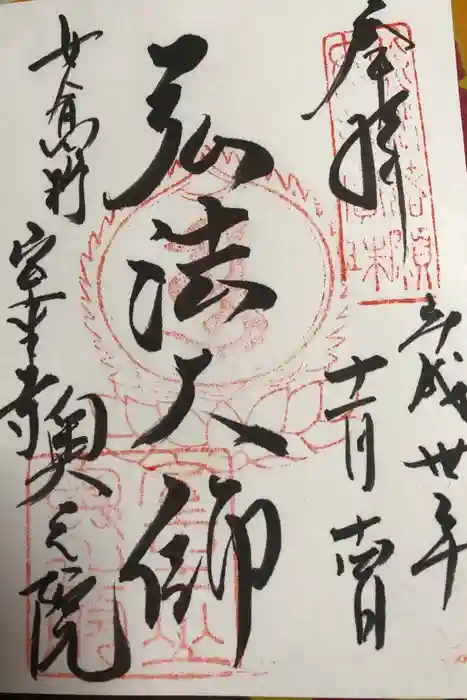 奉拝
平成卅年
十一月十四日
弘法大師
女人高野
室生寺
奥之院